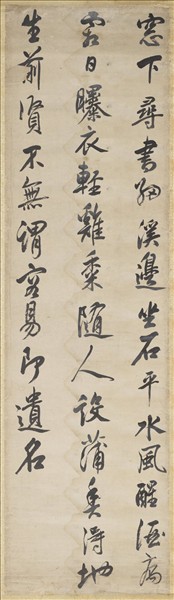 窓下尋書細溪邊坐石平水風醒酒病
霜日曝衣輕雞黍隨人設蒲魚得地
生前賢不無謂容易即遺名